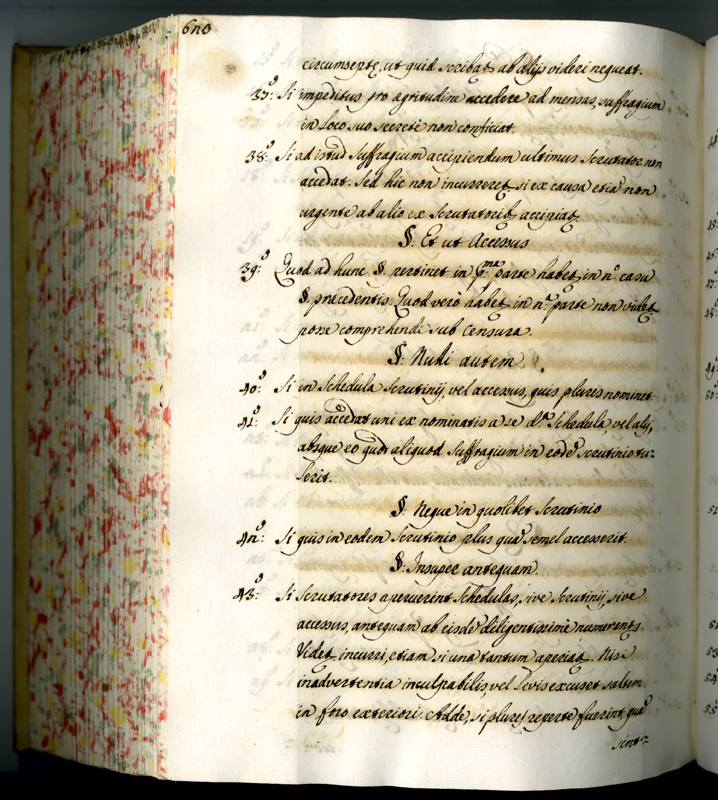 6n0
circumsepte, ut quid scribat ab alijs videri nequeat.
37.º Si impeditus pro ægritudine accedere ad mensas, suffragium
in loco suo secretè non conficiat.
38.º Si ad istud suffragium accipiendum ultimus Scrutator non
accedat. Sed hic non incurreret si ex causa etiã non
urgente ab alio ex Scrutatorib. accipiat.
§. Et ut Accessus
39.º Quod ad hunc §. pertinet in pr.ma parte habet. in n.º casu
§. præcedentis. Quod verò habet. in n.ª parte non videt.
posse comprehendi sub Censura.
§. Nulli autem
40.º Si in Schedula Scrutinij, vel accessus, quis plures nominet.
41.º Si quis accedat uni ex nominatis a se d.ª Schedula, vel alij,
absque eo quod aliquod suffragium in eodẽ scrutinio tu-
lerit.
§. Neque in quolibet Scrutinio
4n.º Si quis in eodem Scrutinio plus quã semel accesserit.
§. Insuper antequam.
43.º Si Scrutatores aperuerint Schedulas, sive Scrutinij, sive
accessus, antequam ab eisdẽ diligentissimè numerent.
Videt. incurri, etiam si una tantum aperiat. Nisi
inadvertentia inculpabilis, vel levis excuset saltem
in foro exteriori. Adde, si plures reperte fuerint, quã
sint